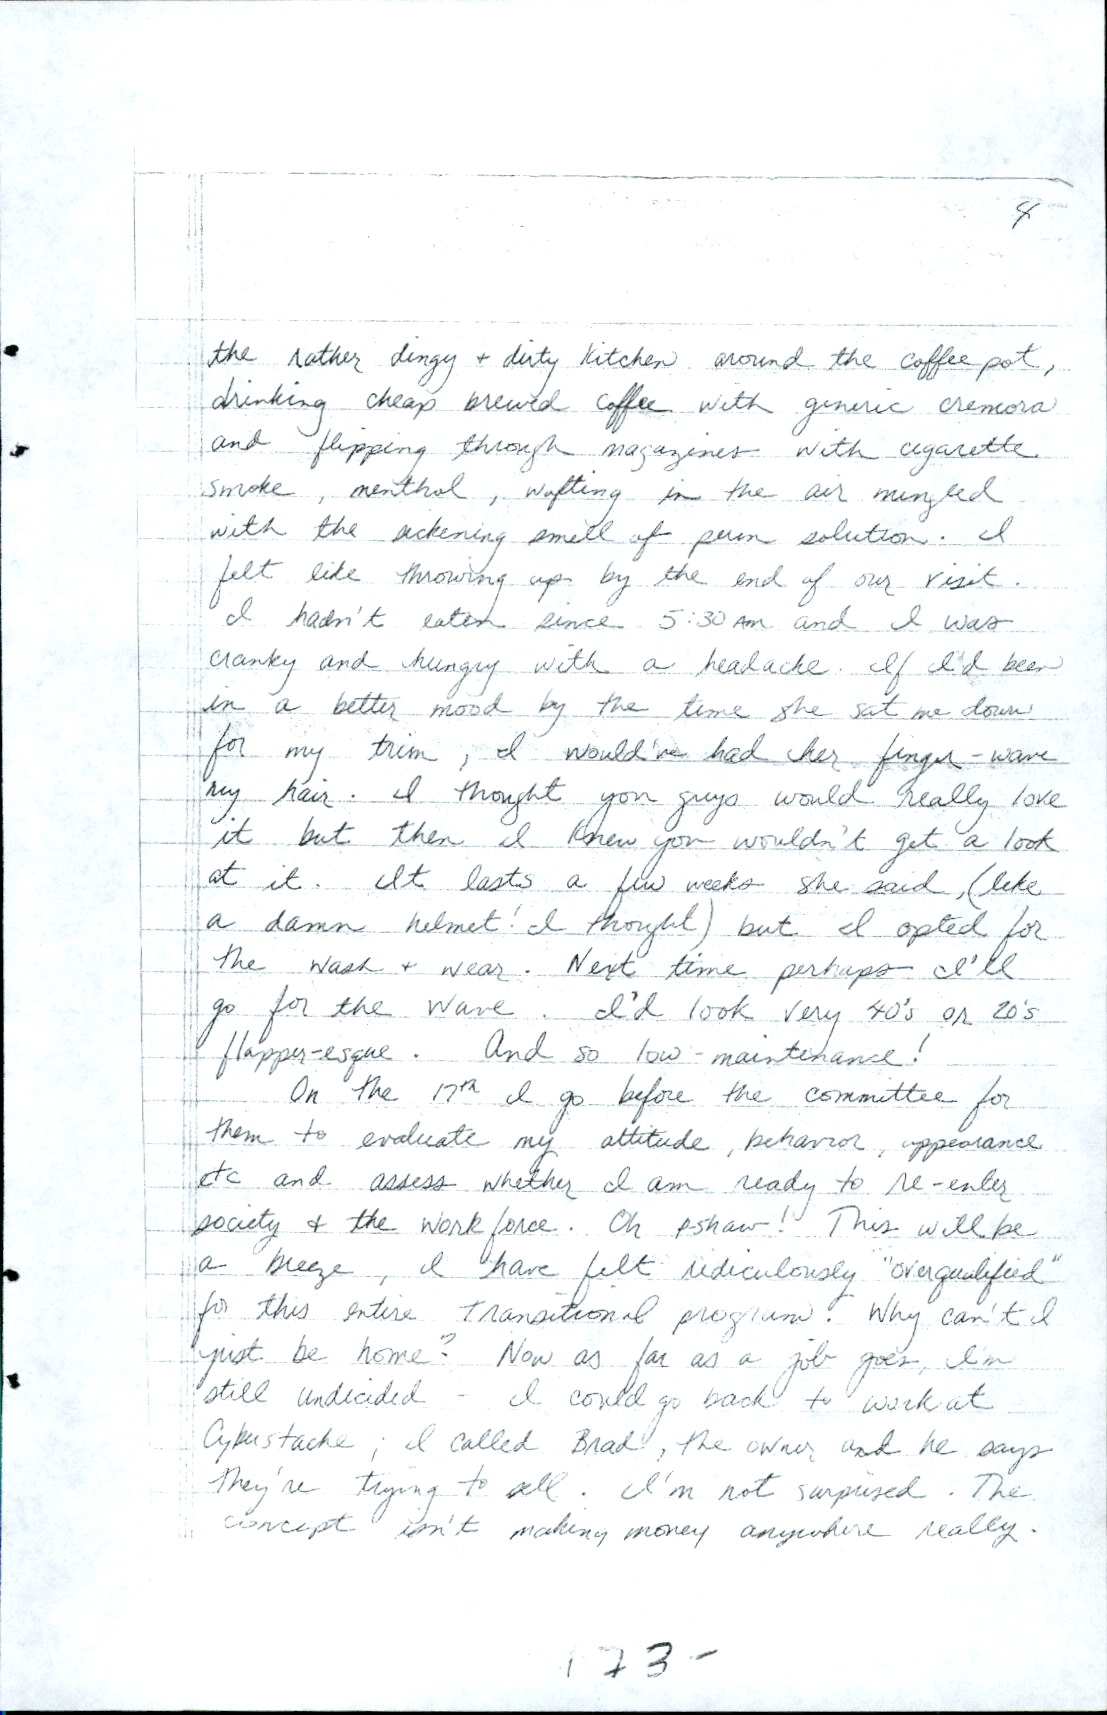 4
the rather dingy + dirty kitchen around the coffee pot,
drinking cheap brewed coffee with generic cremora
and flipping through magazines with cigarette
smoke, menthol, wafting in the air mingled
with the sickening smell of perm solution. I
felt like throwing up by the end of our visit.
I hadn't eaten since 5:30 AM and I was
cranky and hungry with a headache. If I'd been
in a better mood by the time she sat me down
for my trim, I would've had her finger-wave
my hair. I thought you guys would really love
it but then I knew you wouldn't get a look
at it. It lasts a few weeks she said, (like
a damn helmet! I thought) but I opted for
the wash + wear. Next time perhaps I'll
go for the wave. I'd look very 40's or 20's
flapper-esque. And so low-maintenance!
On the 17th I go before the committee for
them to evaluate my attitude, behavior, appearance
etc and assess whether I am ready to re-enter
society + the work force. Oh pshaw! This will be
a breeze, I have felt ridiculously "overqualified"
for this entire transitional program! Why can't I
just be home? Now as far as a job goes, I'm
still undecided - I could go back to work at
Cyberstache; I called Brad, the owner and he says
they're trying to sell. I'm not surprised. The
concept isn't making money anywhere really.
173-